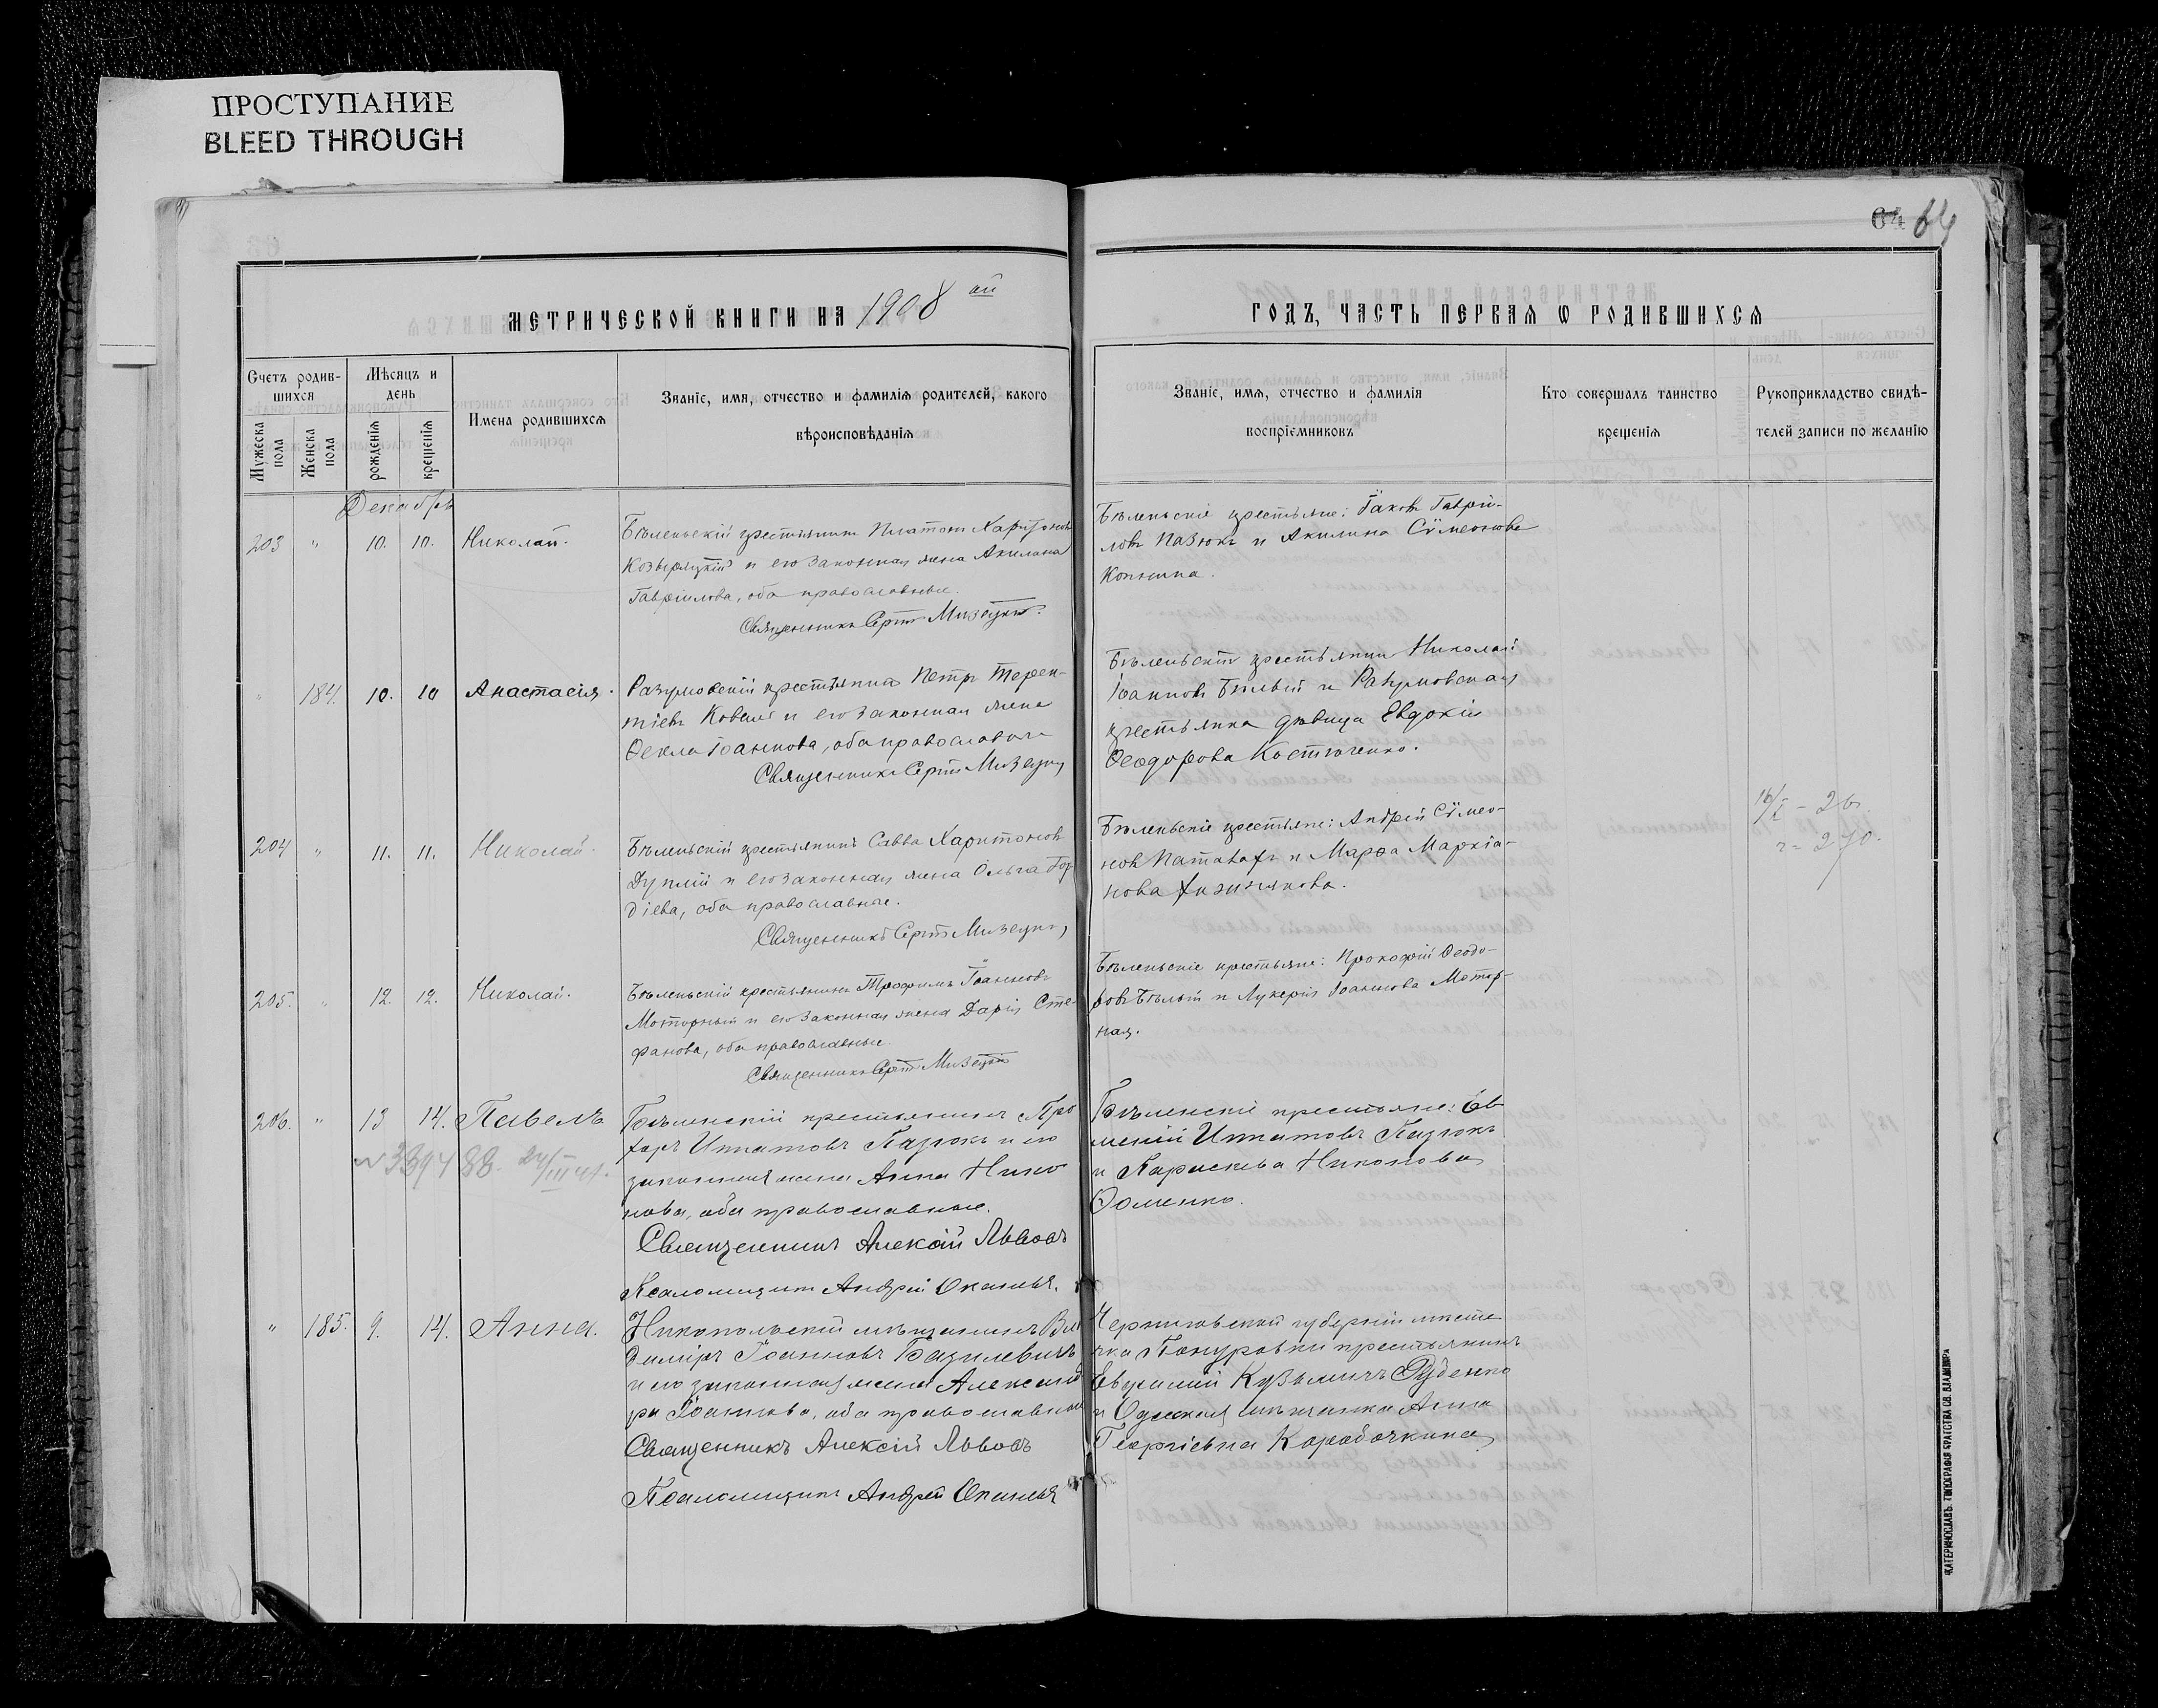 ПРОСТУПАНИЕ
BLEED THROUGH
64 64
МЕТРИЧЕСКОЙ КНИГИ НА 1908 ой
ГОДЪ, ЧАСТЬ ПЕРВАЯ Ѡ РОДИВШИХСЯ
Счетъ родив-
шихся
Мужеска пола
Женска пола
Мѣсяцъ и
день
рожденія
крещенія
Имена родившихся
Званіе, имя, отчество и фамилія родителей, какого
вѣроисповѣданія
Званіе, имя, отчество и фамилія
воспріємниковъ
Кто совершалъ таинство
крещенія
Рукоприкладство свидѣ-
телей записи по желанію
Декабрь
203 " 10. 10. Николай.
Бѣленьскій крестьянинъ Платонъ Харитоновъ
Козырицкій и его законная жена Акилина
Гавріилова, оба православные.
Священникъ Мизецкій
Бѣленьскіе крестьяне: Іаковъ Гаврії-
ловъ Пазюкъ и Акилина Сѵмеонова
Копнина.
" 184. 10. 10 Анастасія.
Разумовскій крестьянинъ Петръ Терен-
тіевъ и его законная жена
Ѳекла Іоаннова, оба православные
Священникъ Мизецкій
Бѣленьскій крестьянинъ Николай
Іоанновъ Бѣлый и Разумовская
крестьянка дѣвица Евдокія
Ѳеодорова Костюченко.
204 " 11. 11. Николай.
Бѣленьскій крестьянинъ Савва Харитоновъ
Дуплій и его законная жена Ольга Гор-
діева, оба православные.
Священникъ Мизецкій
Бѣленьскіе крестьяне: Андрей Сѵмео-
новъ и Марѳа Маркіа-
нова
16/I - 26.
270.
205. " 12. 12. Николай.
Бѣленьскій крестьянинъ Трофимъ Іоанновъ
Моторный и его законная жена Дарія Сте-
фанова, оба православные.
Священникъ Мизецкій
Бѣленьскіе крестьяне: Прокофій Ѳеодо-
ровъ Бѣлый и Лукерія Іоаннова Мотор-
ная.
206. " 13 14. Павелъ
24/III 41.
Бѣленскій крестьянинъ Про
хоръ Ипатовъ Пазюкъ и его
законная жена Анна Нико
нова, оба православные.
Священникъ Алексій Львовъ
Псаломщикъ Андрей
Бѣленскіе крестьяне: Ев
меній Ипатовъ Пазюкъ
и Параскева Никонова
Ѳоменко.
" 185. 9. 14. Анна.
Никопольскій мѣщанинъ Вла
диміръ Іоанновъ Базилевичъ
и его законная жена Александ
ра Іоаннова, оба православные
Священникъ Алексій Львовъ
Псаломщикъ Андрей
Черниговской губерніи мѣсте
чка Понуровки крестьянинъ
Евфимій Кузьмичъ Руденко
и Одесская мѣщанка Анна
Георгіевна Коробочкина
ЕКАТЕРИНОСЛАВЪ. ТИПОГРАФІЯ БРАТСТВА СВ. ВЛАДИМІРА